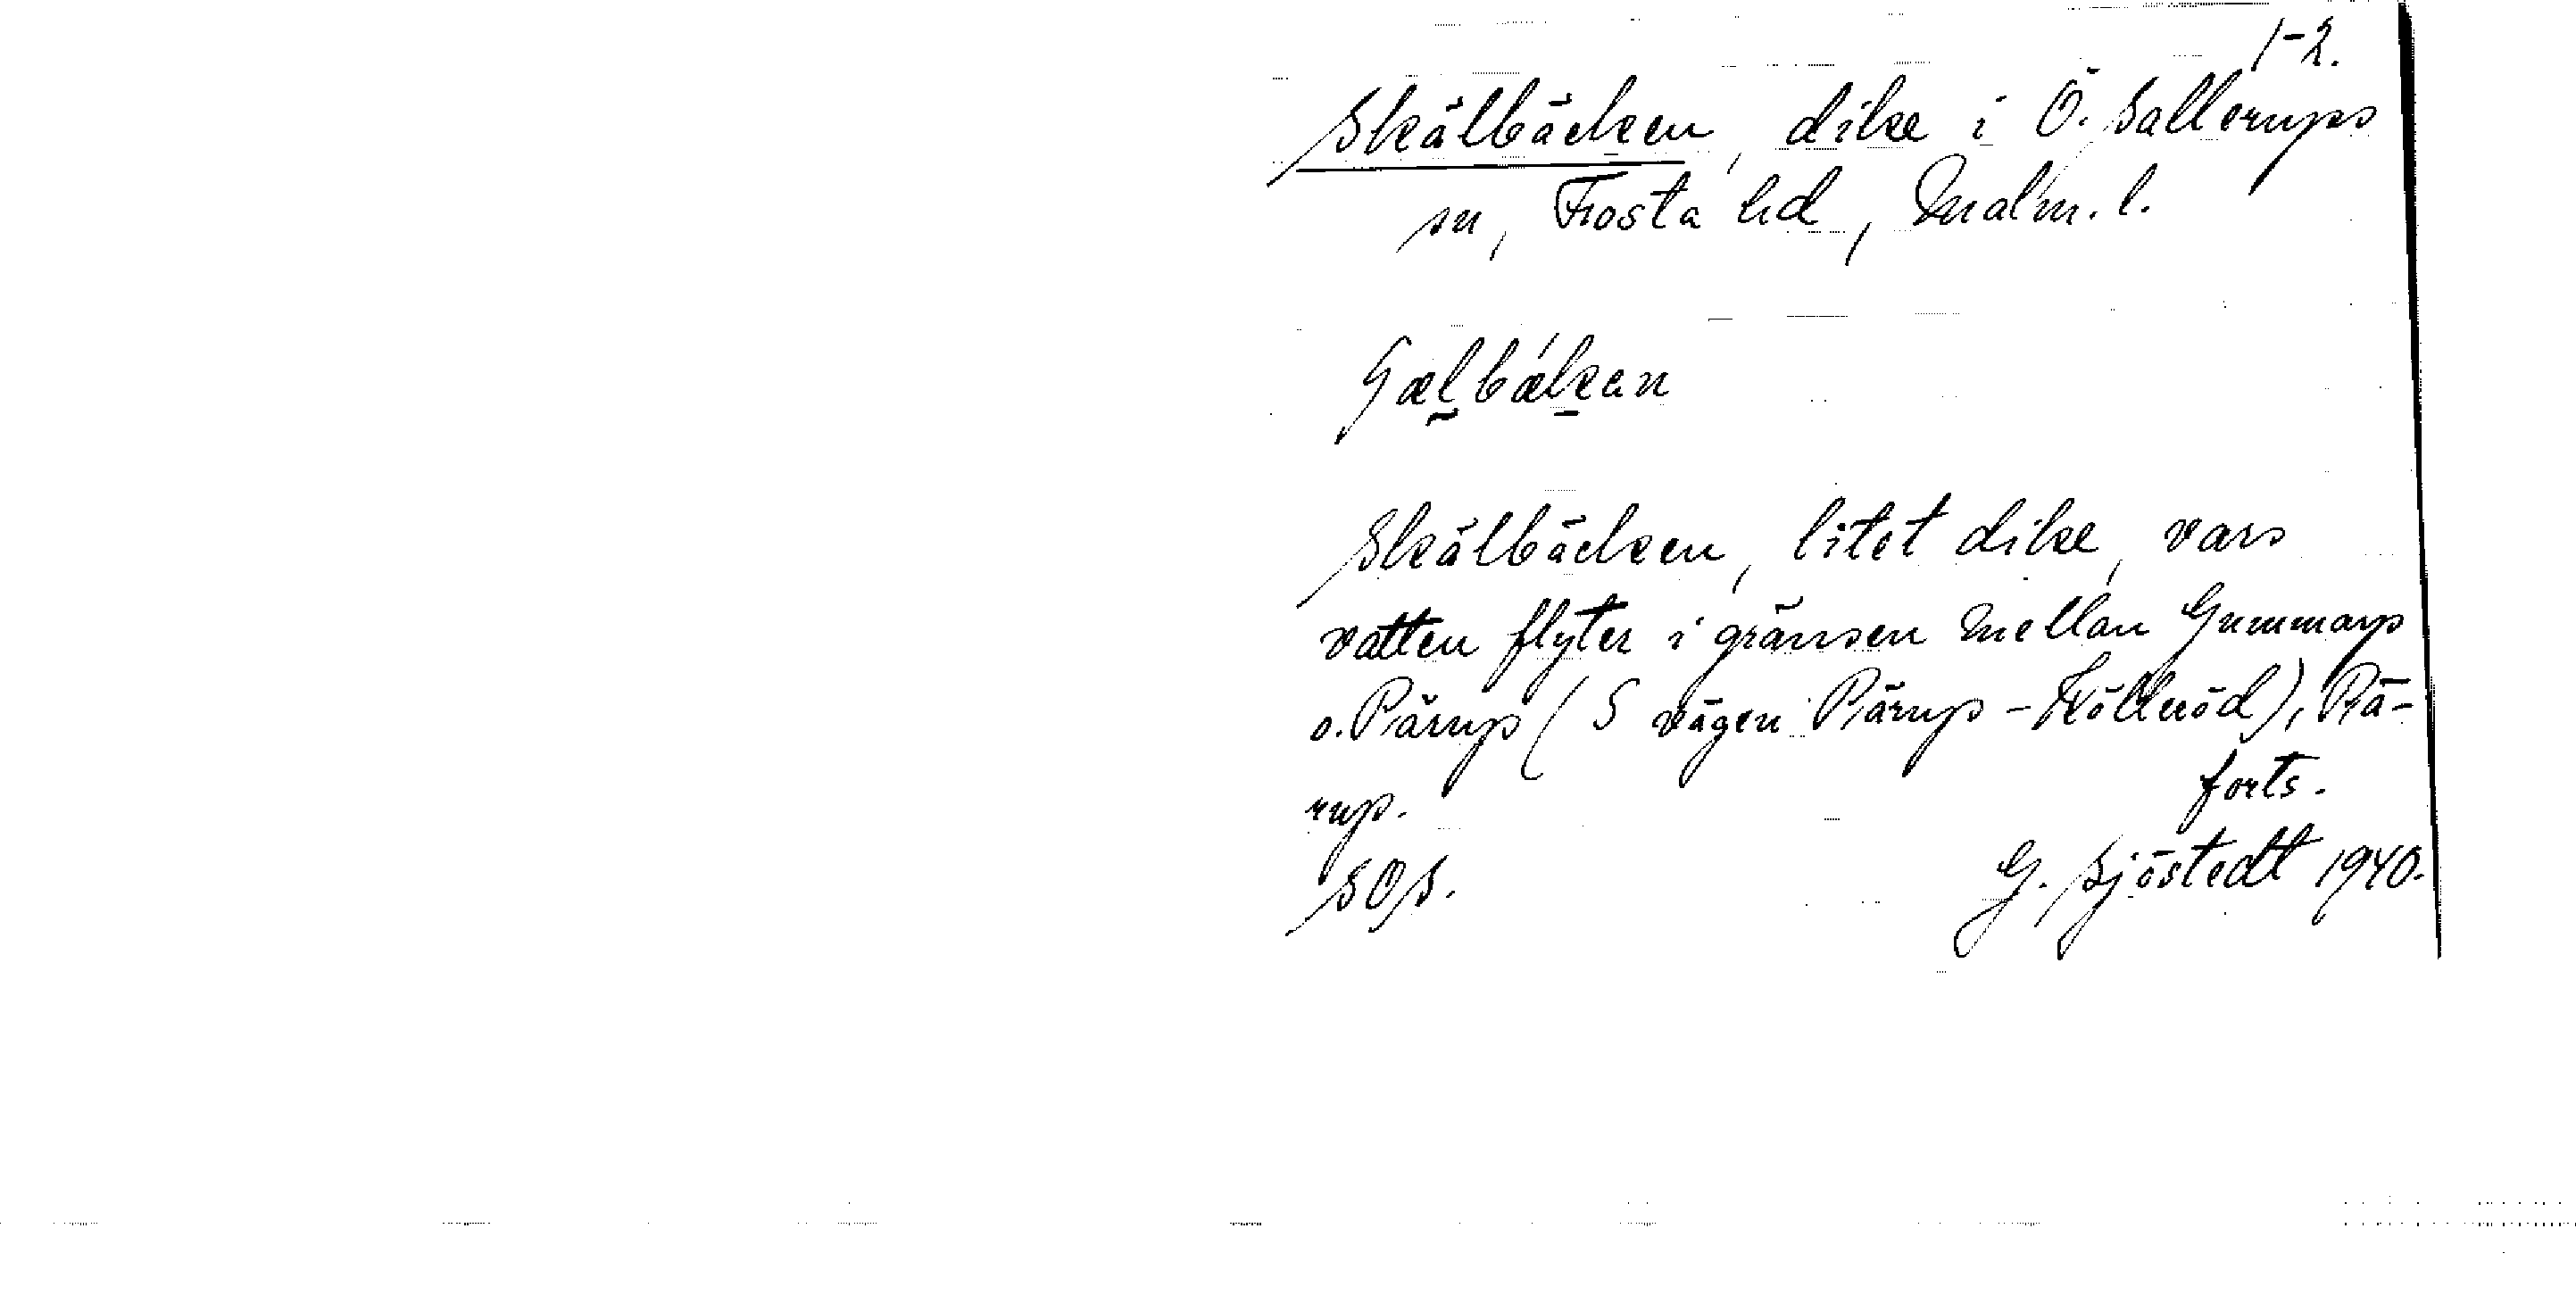 1-2.
Skälbäcken, dike i Ö. Sallerups
sn, Frosta hd, Malm. l.
Skälbäcken, litet dike, vars
vatten flyter i gränsen mellan Gummarp
o. Pärup (S vägen Pärup - Kölleröd), Pä-
rup.
forts.
SOS.
G. Sjöstedt 1940.